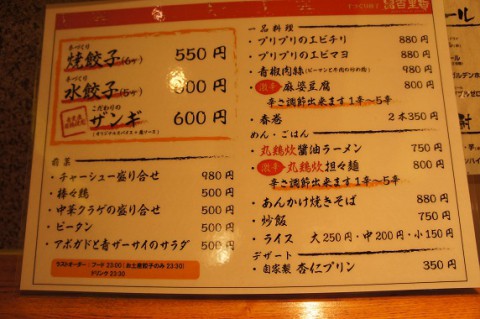 手づくり
焼餃子(6ヶ) 550円
手づくり
水餃子(6ヶ) 600円
こだわりの
ザンギ 600円
前菜
・チャーシュー盛り合せ 980円
・棒々鶏 500円
・中華クラゲの盛り合せ 500円
・ピータン 500円
・アボガドと青ザーサイのサラダ 500円
ラストオーダー:フード 23:00(お土産餃子のみ 23:30)
ドリンク 23:30
一品料理
・プリプリのエビチリ 880円
・プリプリのエビマヨ 880円
・青椒肉絲(ピーマンと牛肉の炒め物) 980円
・激辛 麻婆豆腐 800円
辛さ調節出来ます1辛〜5辛
・春巻 2本350円
めん・ごはん
・丸鶏炊醤油ラーメン 750円
・激辛 丸鶏炊担々麺 800円
辛さ調節出来ます1辛〜5辛
・あんかけ焼きそば 880円
・炒飯 750円
・ライス 大250円・中200円・小150円
デザート
・自家製 杏仁プリン 350円